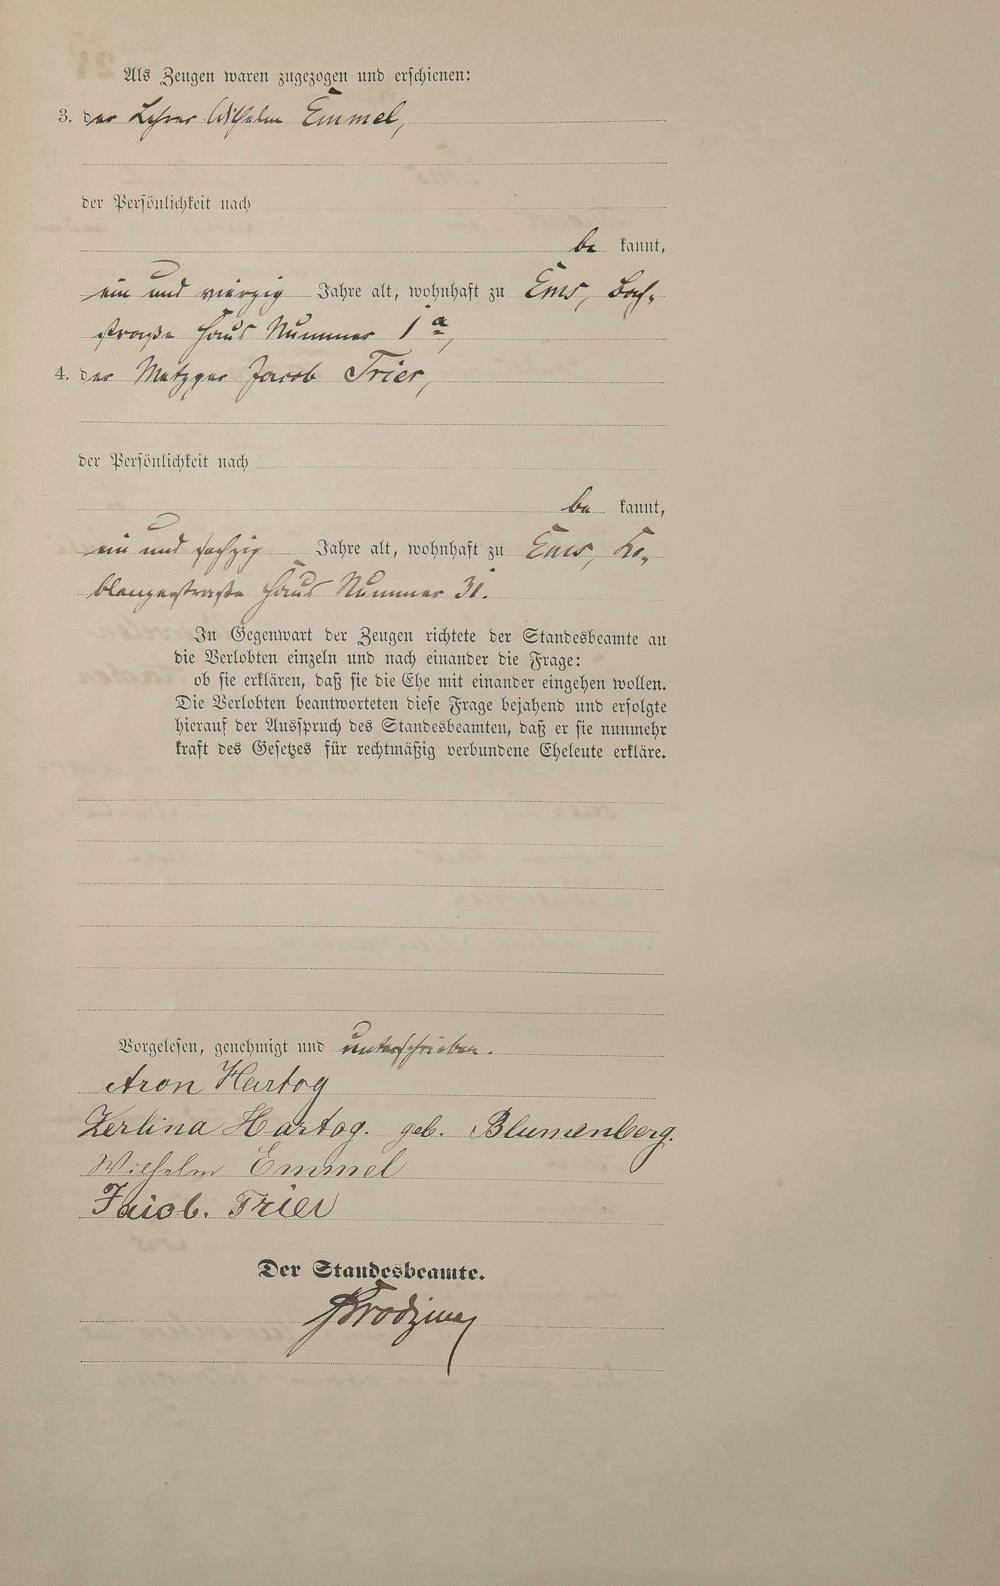 Als Zeugen waren zugezogen und erschienen:
3. der Lehrer Wilhelm Emmel,
der Persönlichkeit nach
be kannt,
ein und vierzig Jahre alt, wohnhaft zu Ems, Bach-
straße Haus Nummer 1a,
4. der Metzger Jacob Trier,
der Persönlichkeit nach
be kannt,
ein und sechzig Jahre alt, wohnhaft zu Ems, Co-
blenzerstraße Haus Nummer 31.
In Gegenwart der Zeugen richtete der Standesbeamte an
die Verlobten einzeln und nach einander die Frage:
ob sie erklären, daß sie die Ehe mit einander eingehen wollen.
Die Verlobten beantworteten diese Frage bejahend und erfolgte
hierauf der Ausspruch des Standesbeamten, daß er sie nunmehr
kraft des Gesetzes für rechtmäßig verbundene Eheleute erkläre.
Vorgelesen, genehmigt und unterschrieben.
Aron Hartog
Zerlina Hartog. geb. Blumenberg.
Wilhelm Emmel
Jacob. Trier
Der Standesbeamte.